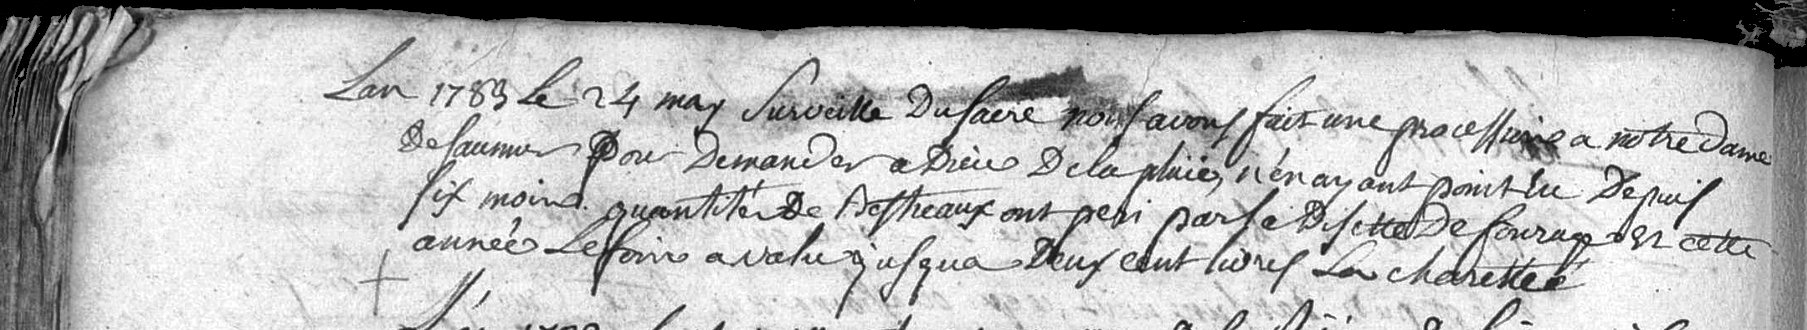 Lan 1783 Le 24 may Surveille Du Sacre nous avons fait une processione a notre Dame
de saumur pour Demander a Dieu De la pluie, n'en ayant point eu Depuis
six moins. quantitée De bestreaux ont peri par la Disette De fourage Et cette
année Le foin a valu jusqua Deux cent livres La charettée